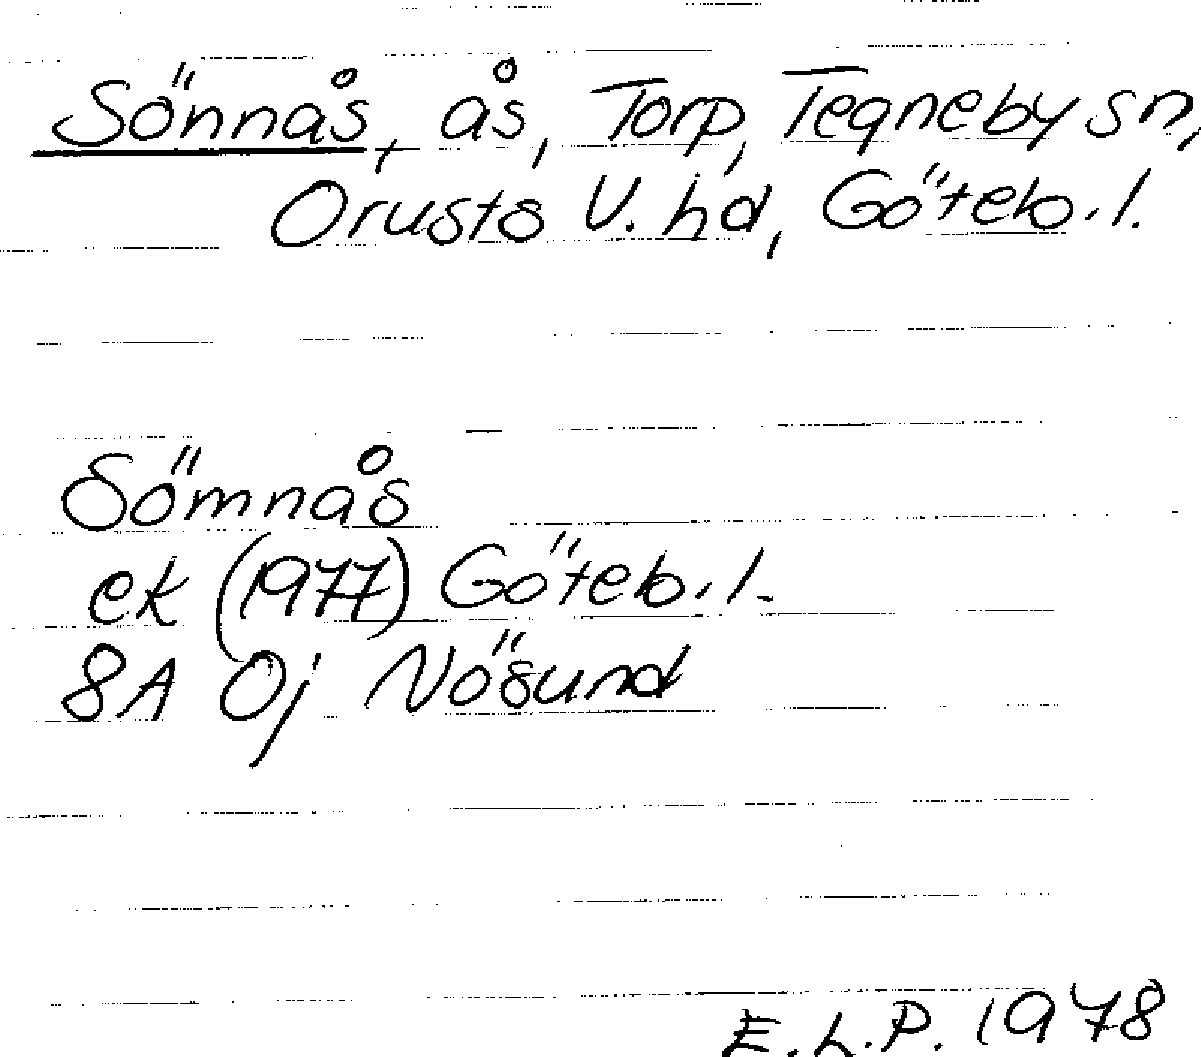 Sönnås, ås, Torp, Tegneby sn,
Orusts V. hd, Göteb.l.
Sömnås
ek (1977) Göteb.l.
8A 0j Nösund
E.L.P. 1978